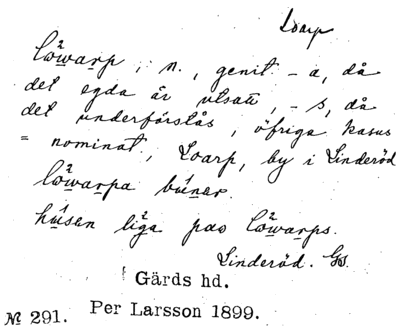 Loarp
löwarp, n., genit. -a, då
det egda är utsatt, -s, då
det underförstås, öfriga kasus
= nominat; Loarp, by i Linderöd
löwarpa búnar.
húsen liga pao löwarps.
Linderöd. Gs.
Gärds hd.
№ 291. Per Larsson 1899.